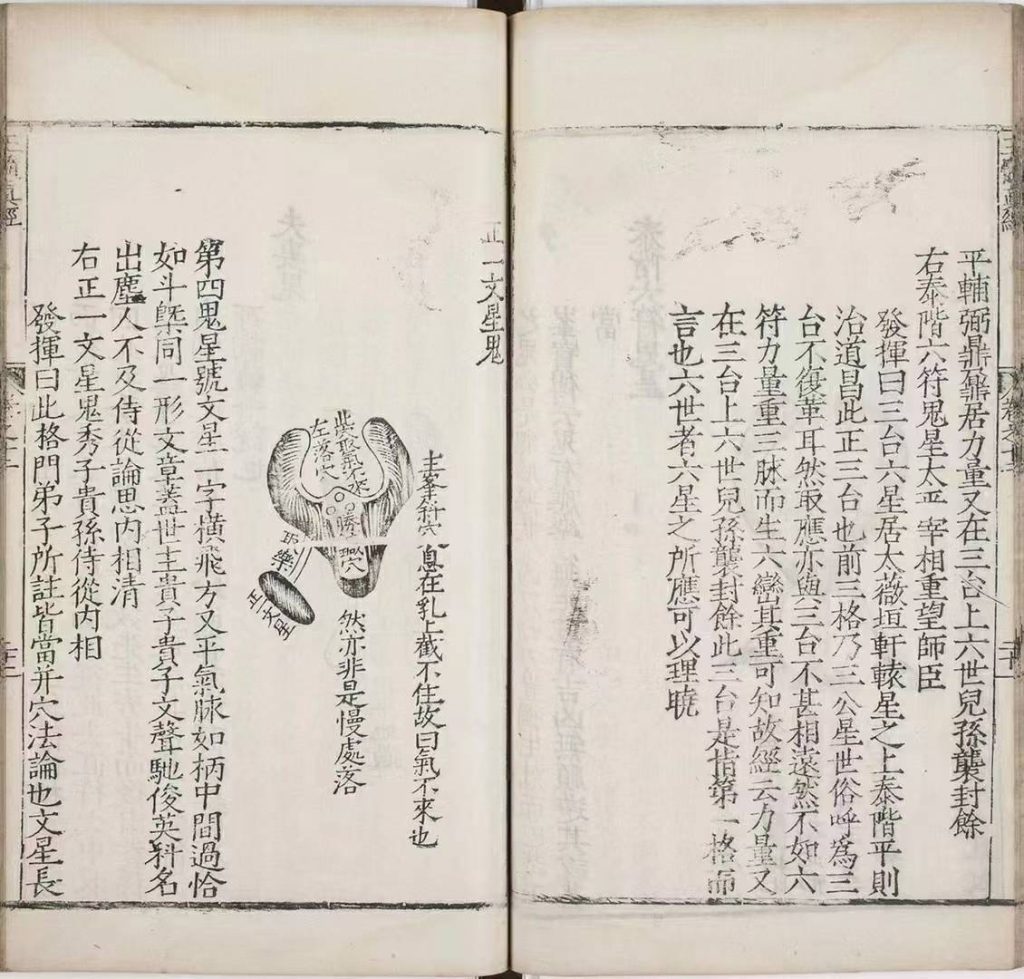 平輔弼鼎鼐居力量又在三台上六世兒孫襲封餘
右泰階六符鬼星太平宰相重望師臣
發揮曰三台六星居太薇垣軒轅星之上泰階平則
治道昌此正三台也前三格乃三公星世俗呼爲三
台不復革耳然取應亦與三台不甚相遠然不如六
符力量重三脉而生六巒其重可知故經云力量又
在三台上六世兒孫襲封餘此三台是指第一格而
言也六世者六星之所應可以理曉
正一文星鬼
穴息在乳上截不住故曰氣不來也
左落穴
然亦非是慢處落
第四鬼星號文星一字橫飛方又平氣脉如柄中間過恰
如斗槩同一形文章蓋世主貴子貴子文聲馳俊英科名
出塵人不及侍從論思内相清
右正一文星鬼秀子貴孫侍從内相
發揮曰此格門弟子所註皆當并穴法論也文星長